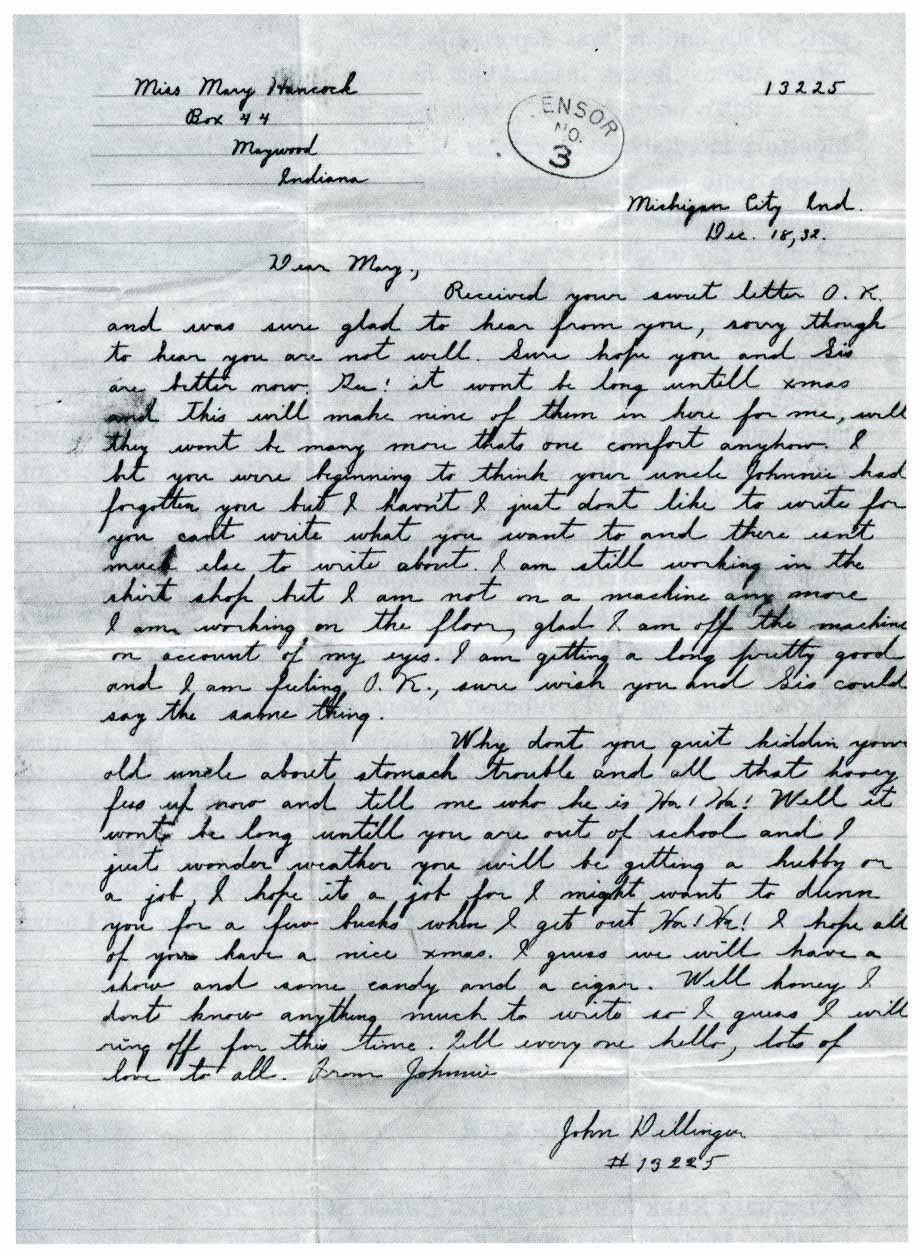 Miss Mary Hancock
13225
Box 44
Maywood
Indiana
ENSOR
NO.
3
Michigan City Ind.
Dec. 18, 32.
Dear Mary.,
Received your sweet letter O. K.
and was sure glad to hear from you, sorry though
to hear you are not well. Sure hope you and Sis
are better now. Gee! it wont be long untill xmas
and this will make nine of them in here for me, well
they wont be many more thats one comfort anyhow. I
bet you were beginning to think your uncle Johnnie had
forgotten you but I havn't I just dont like to write for
you can't write what you want to and there isn't
much else to write about. I am still working in the
shirt shop but I am not on a machine any more
I am working on the floor, glad I am off the machine
on account of my eyes. I am getting a long pretty good
and I am feeling O. K., sure wish you and Sis could
say the same thing.
Why dont you quit kiddin your
old uncle about stomach trouble and all that
fess up now and tell me who he is Ha! Ha! Well it
wont be long untill you are out of school and I
just wonder weather you will be getting a hubby or
a job, I hope it a job for I might want to dunn
you for a few bucks when I get out Ha! Ha! I hope all
of you have a nice xmas. I guess we will have a
show and some candy and a cigar. Well honey I
dont know anything much to write so I guess I will
ring off for this time. Tell every one hello, lots of
love to all. From Johnnie
John Dillinger
# 13225